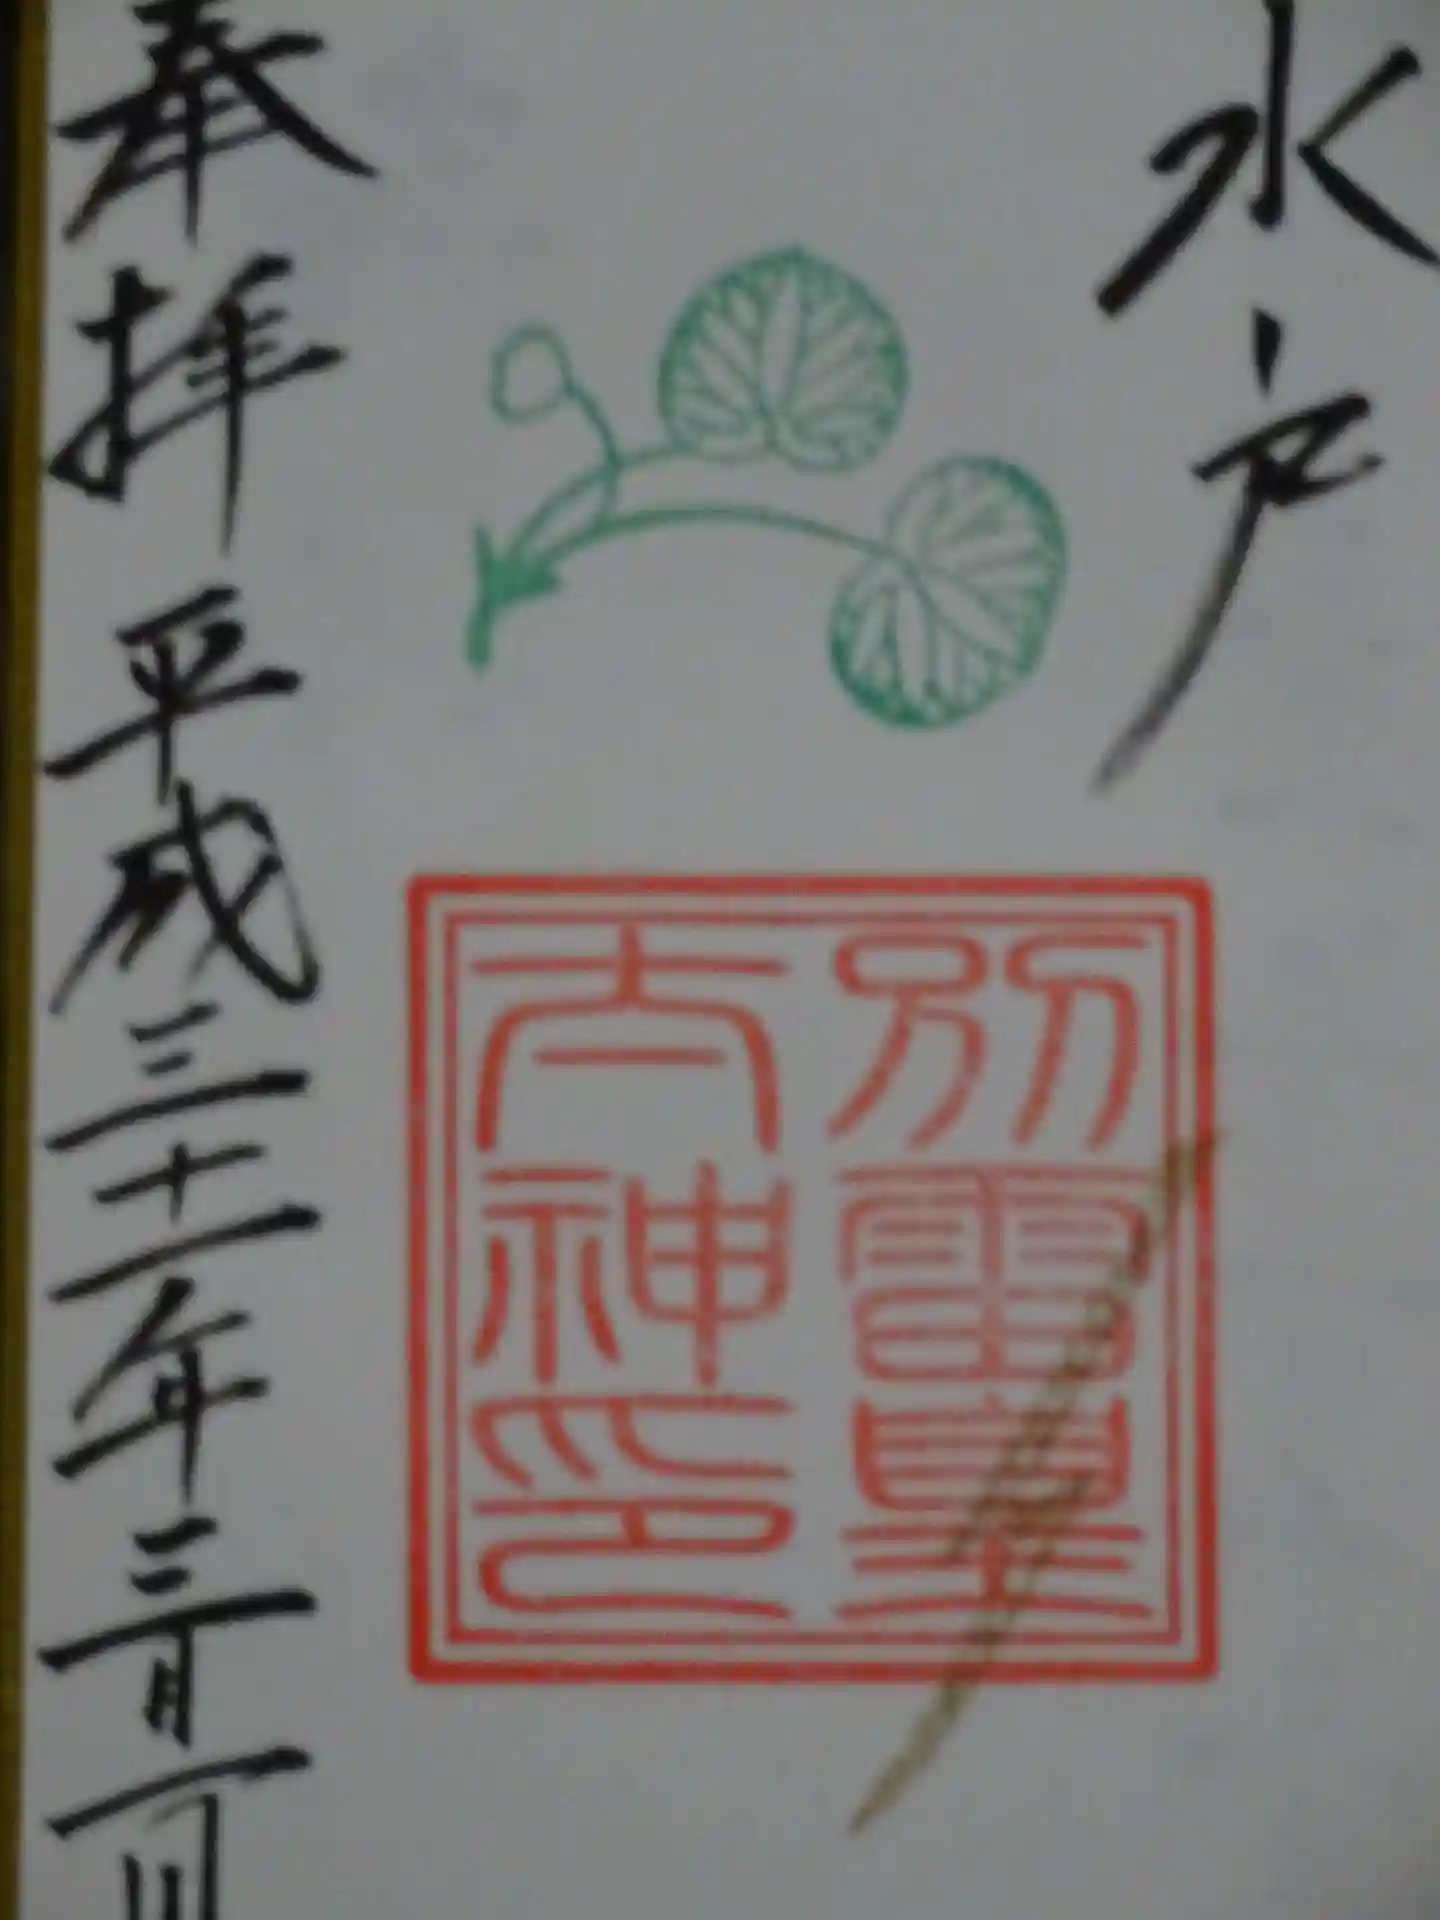 水戸
別雷皇
太神印
奉拝 平成三十一年三月一日